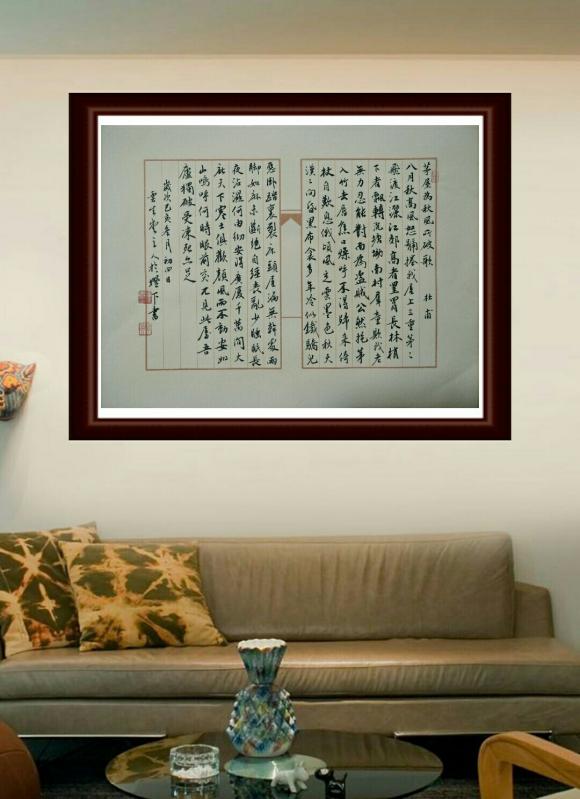 茅屋為秋風所破歌 杜甫
八月秋高風怒號捲我屋上三重茅〻
飛渡江灑江郊高者罥長林梢
下者飄轉沉塘坳南村群童欺我老
無力忍能對面為盜賊公然抱茅
入竹去唇焦口燥呼不得歸來倚
杖自歎息俄頃風定雲墨色秋天
漠〻向昏黑布衾多年冷似鐵驕兒
惡臥踏裏裂床頭屋漏無乾處雨
腳如麻未斷絕自經喪亂少睡眠長
夜沾濕何由徹安得廣廈千萬間大
庇天下寒士俱歡顏風雨不動安如
山嗚呼何時眼前突兀見此屋吾
廬獨破受凍死亦足
歲次己亥月初四日
雲主人於燈下書